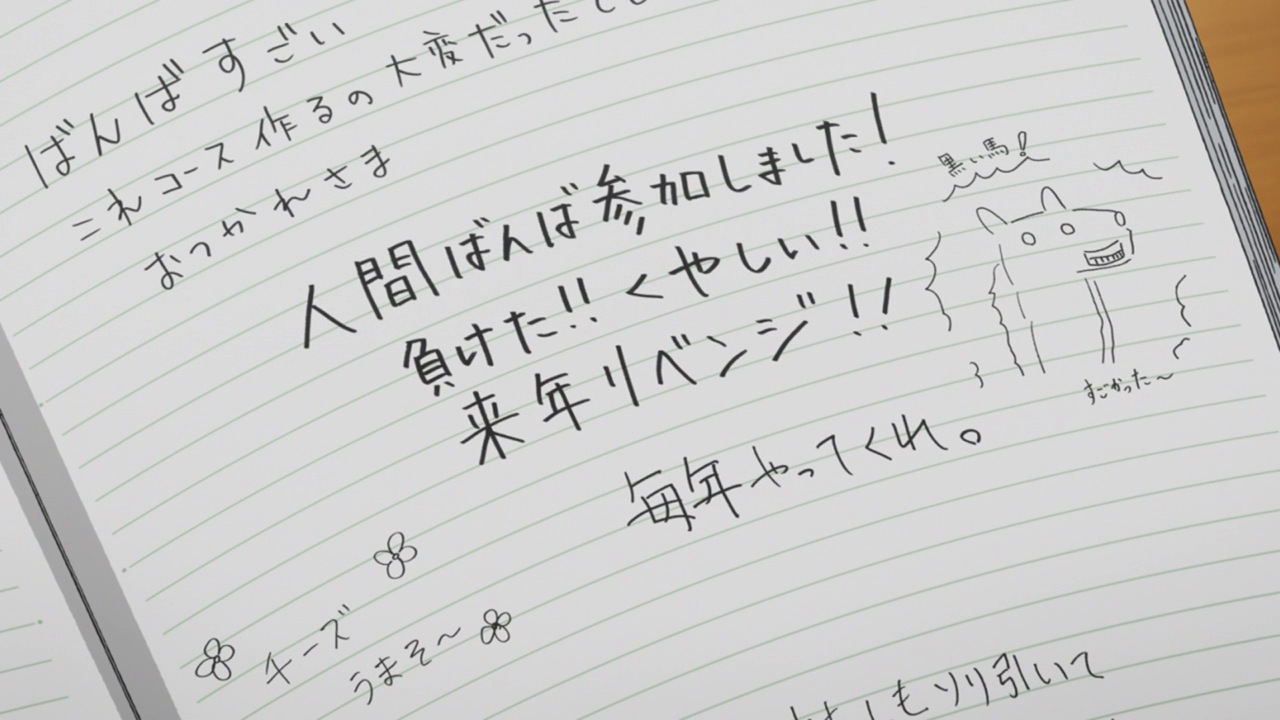 ばんばすごい
これコース作るの大変だった
おつかれさま
人間ばんば参加しました!
負けた!!くやしい!!
来年リベンジ!!
黒い馬!
すごかった〜
毎年やってくれ。
チーズ
うまそ〜
もソリ引いて